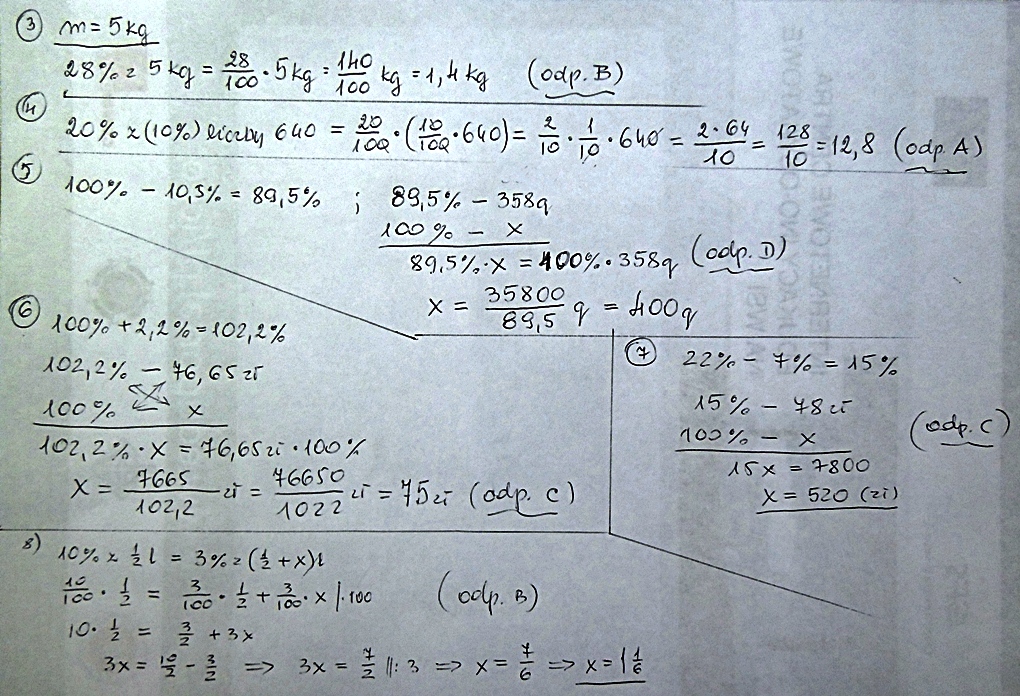 ③ m = 5 kg
28% z 5 kg = 28/100 · 5 kg = 140/100 kg = 1,4 kg (odp. B)
④ 20% z (10%) liczby 640 = 20/100 · (10/100 · 640) = 2/10 · 1/10 · 640 = 2·64/10 = 128/10 = 12,8 (odp. A)
⑤ 100% - 10,5% = 89,5% ; 89,5% - 358g
100% - x
89,5% · x = 100% · 358g (odp. D)
x = 35800/89,5 g = 400g
⑥ 100% + 2,2% = 102,2%
102,2% - 76,65 zł
100% x
102,2% · x = 76,65 zł · 100%
x = 7665/102,2 zł = 76650/1022 zł = 75 zł (odp. C)
⑦ 22% - 7% = 15%
15% - 78 zł
100% - x
15x = 7800
x = 520 (zł)
(odp. C)
8) 10% z 1/2 l = 3% z (1/2 + x) l
10/100 · 1/2 = 3/100 · 1/2 + 3/100 · x |·100 (odp. B)
10 · 1/2 = 3/2 + 3x
3x = 10/2 - 3/2 => 3x = 7/2 ||: 3 => x = 7/6 => x = 1 1/6